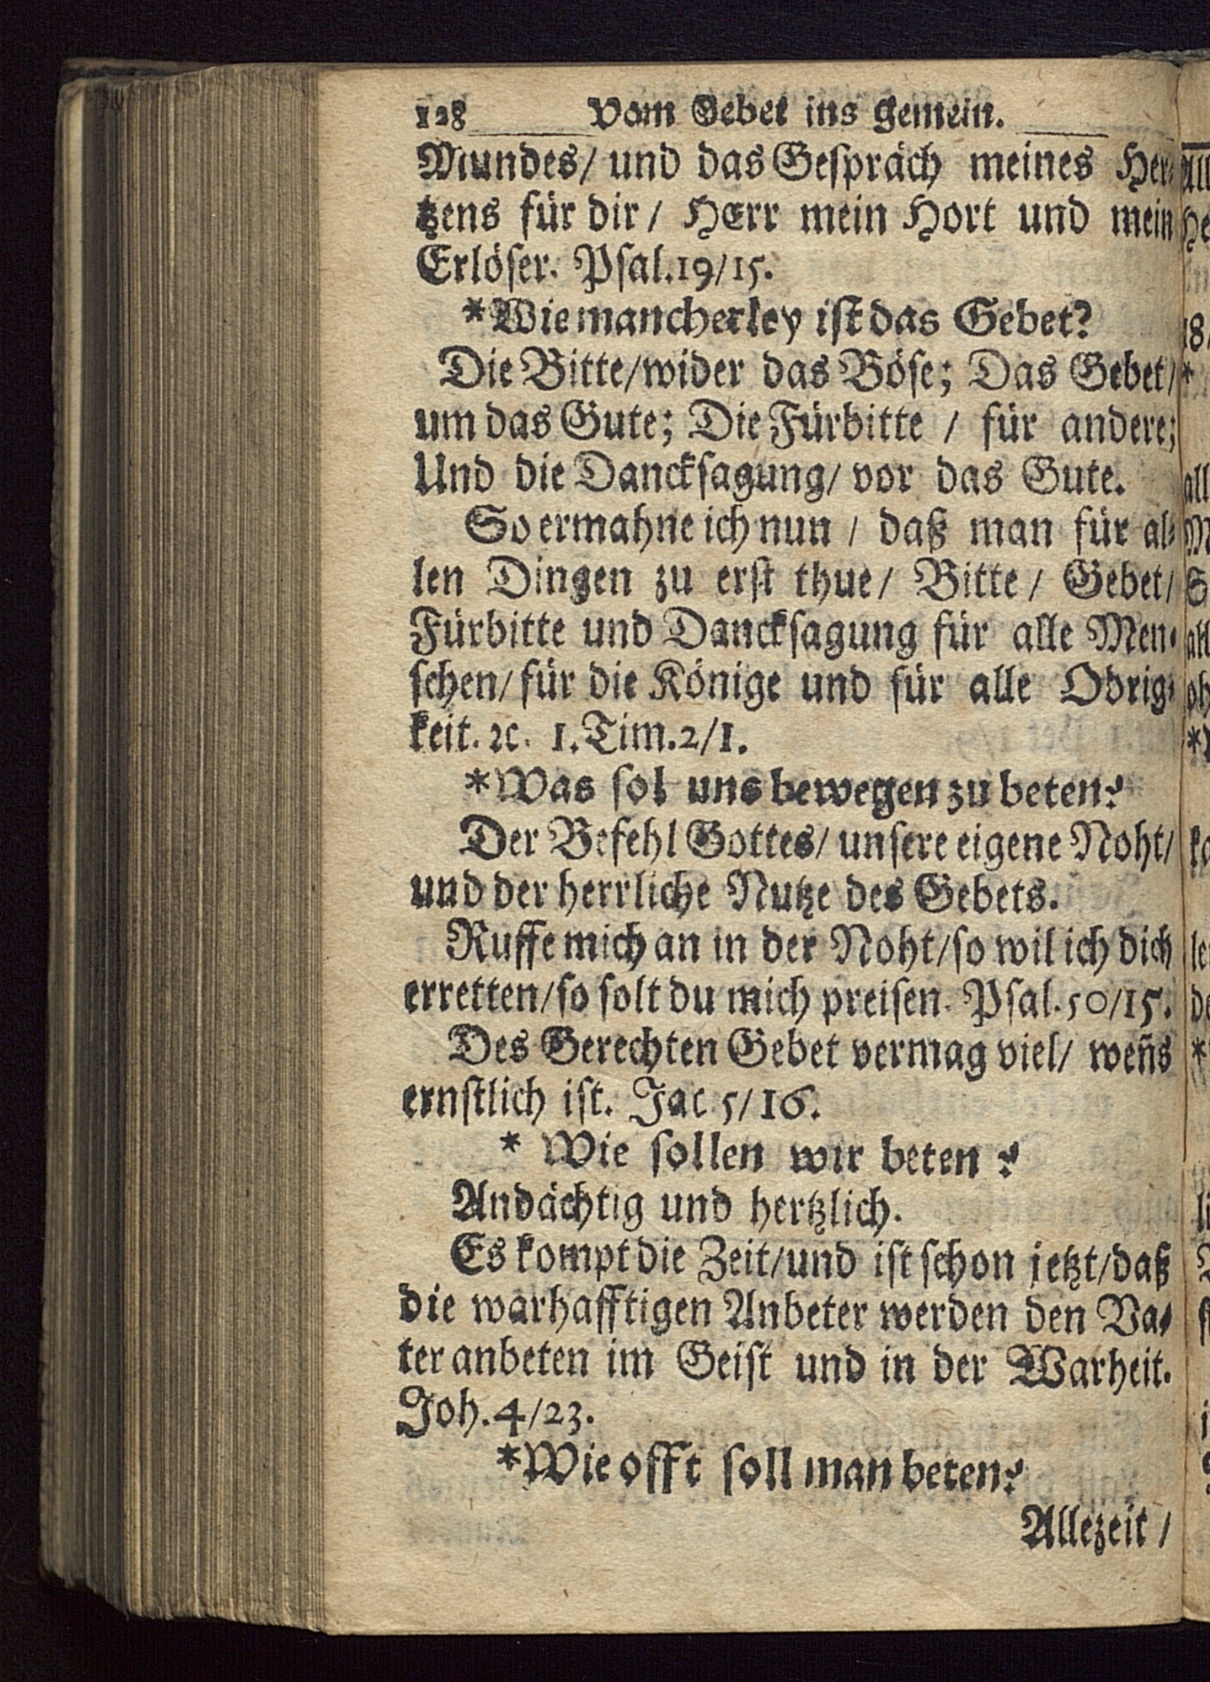 128 Vom Gebet ins gemein.
Mundes/ und das Geſpräch meines Her⸗
tzens für dir/ HErr mein Hort und mein
Erlöſer. Pſal.19/15.
*Wie mancherley iſt das Gebet?
Die Bitte/wider das Böſe; Das Gebet/
um das Gute; Die Fürbitte / für andere;
Und die Danckſagung/ vor das Gute.
So ermahne ich nun / daß man für al⸗
len Dingen zu erſt thue/ Bitte/ Gebet/
Fürbitte und Danckſagung für alle Men⸗
ſchen/ für die Könige und für alle Obrig⸗
keit. ꝛc. 1. Tim.2/1.
*Was ſol uns bewegen zu beten?
Der Befehl Gottes/ unſere eigene Noht/
und der herrliche Nutze des Gebets.
Ruffe mich an in der Noht/ſo wil ich dich
erretten/ſo ſolt du mich preiſen. Pſal.50/15.
Des Gerechten Gebet vermag viel/ weñs
ernſtlich iſt. Jac 5/16.
* Wie ſollen wir beten?
Andächtig und hertzlich.
Es kompt die Zeit/und iſt ſchon jetzt/daß
die warhafftigen Anbeter werden den Va⸗
ter anbeten im Geiſt und in der Warheit.
Joh.4/23.
*Wie offt ſoll man beten?
Allezeit /